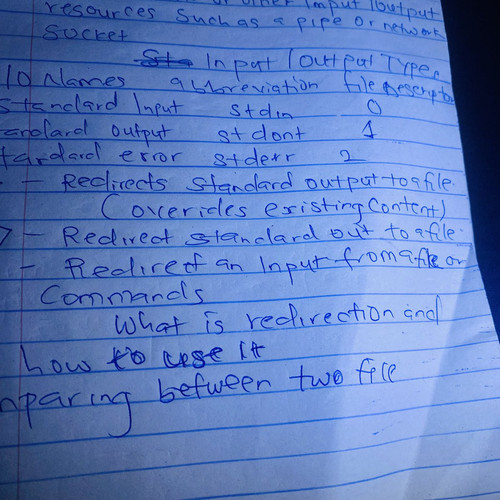 or other Input/output
resources such as a pipe or network
Socket
Input/Output Types
IO Names abbreviation file Descriptor
Standard Input stdin 0
andard output stdout 1
tandard error stderr 2
- Redirects standard output to a file.
(overides existing Content)
> - Redirect standard out to a file.
- Redirect an Input from a file or
Commands
What is redirection and
how to use it
mparing between two file